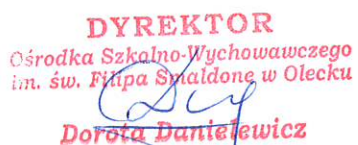 DYREKTOR
Ośrodka Szkolno-Wychowawczego
im. św. Filipa Smaldone w Olecku
Dorota Danielewicz